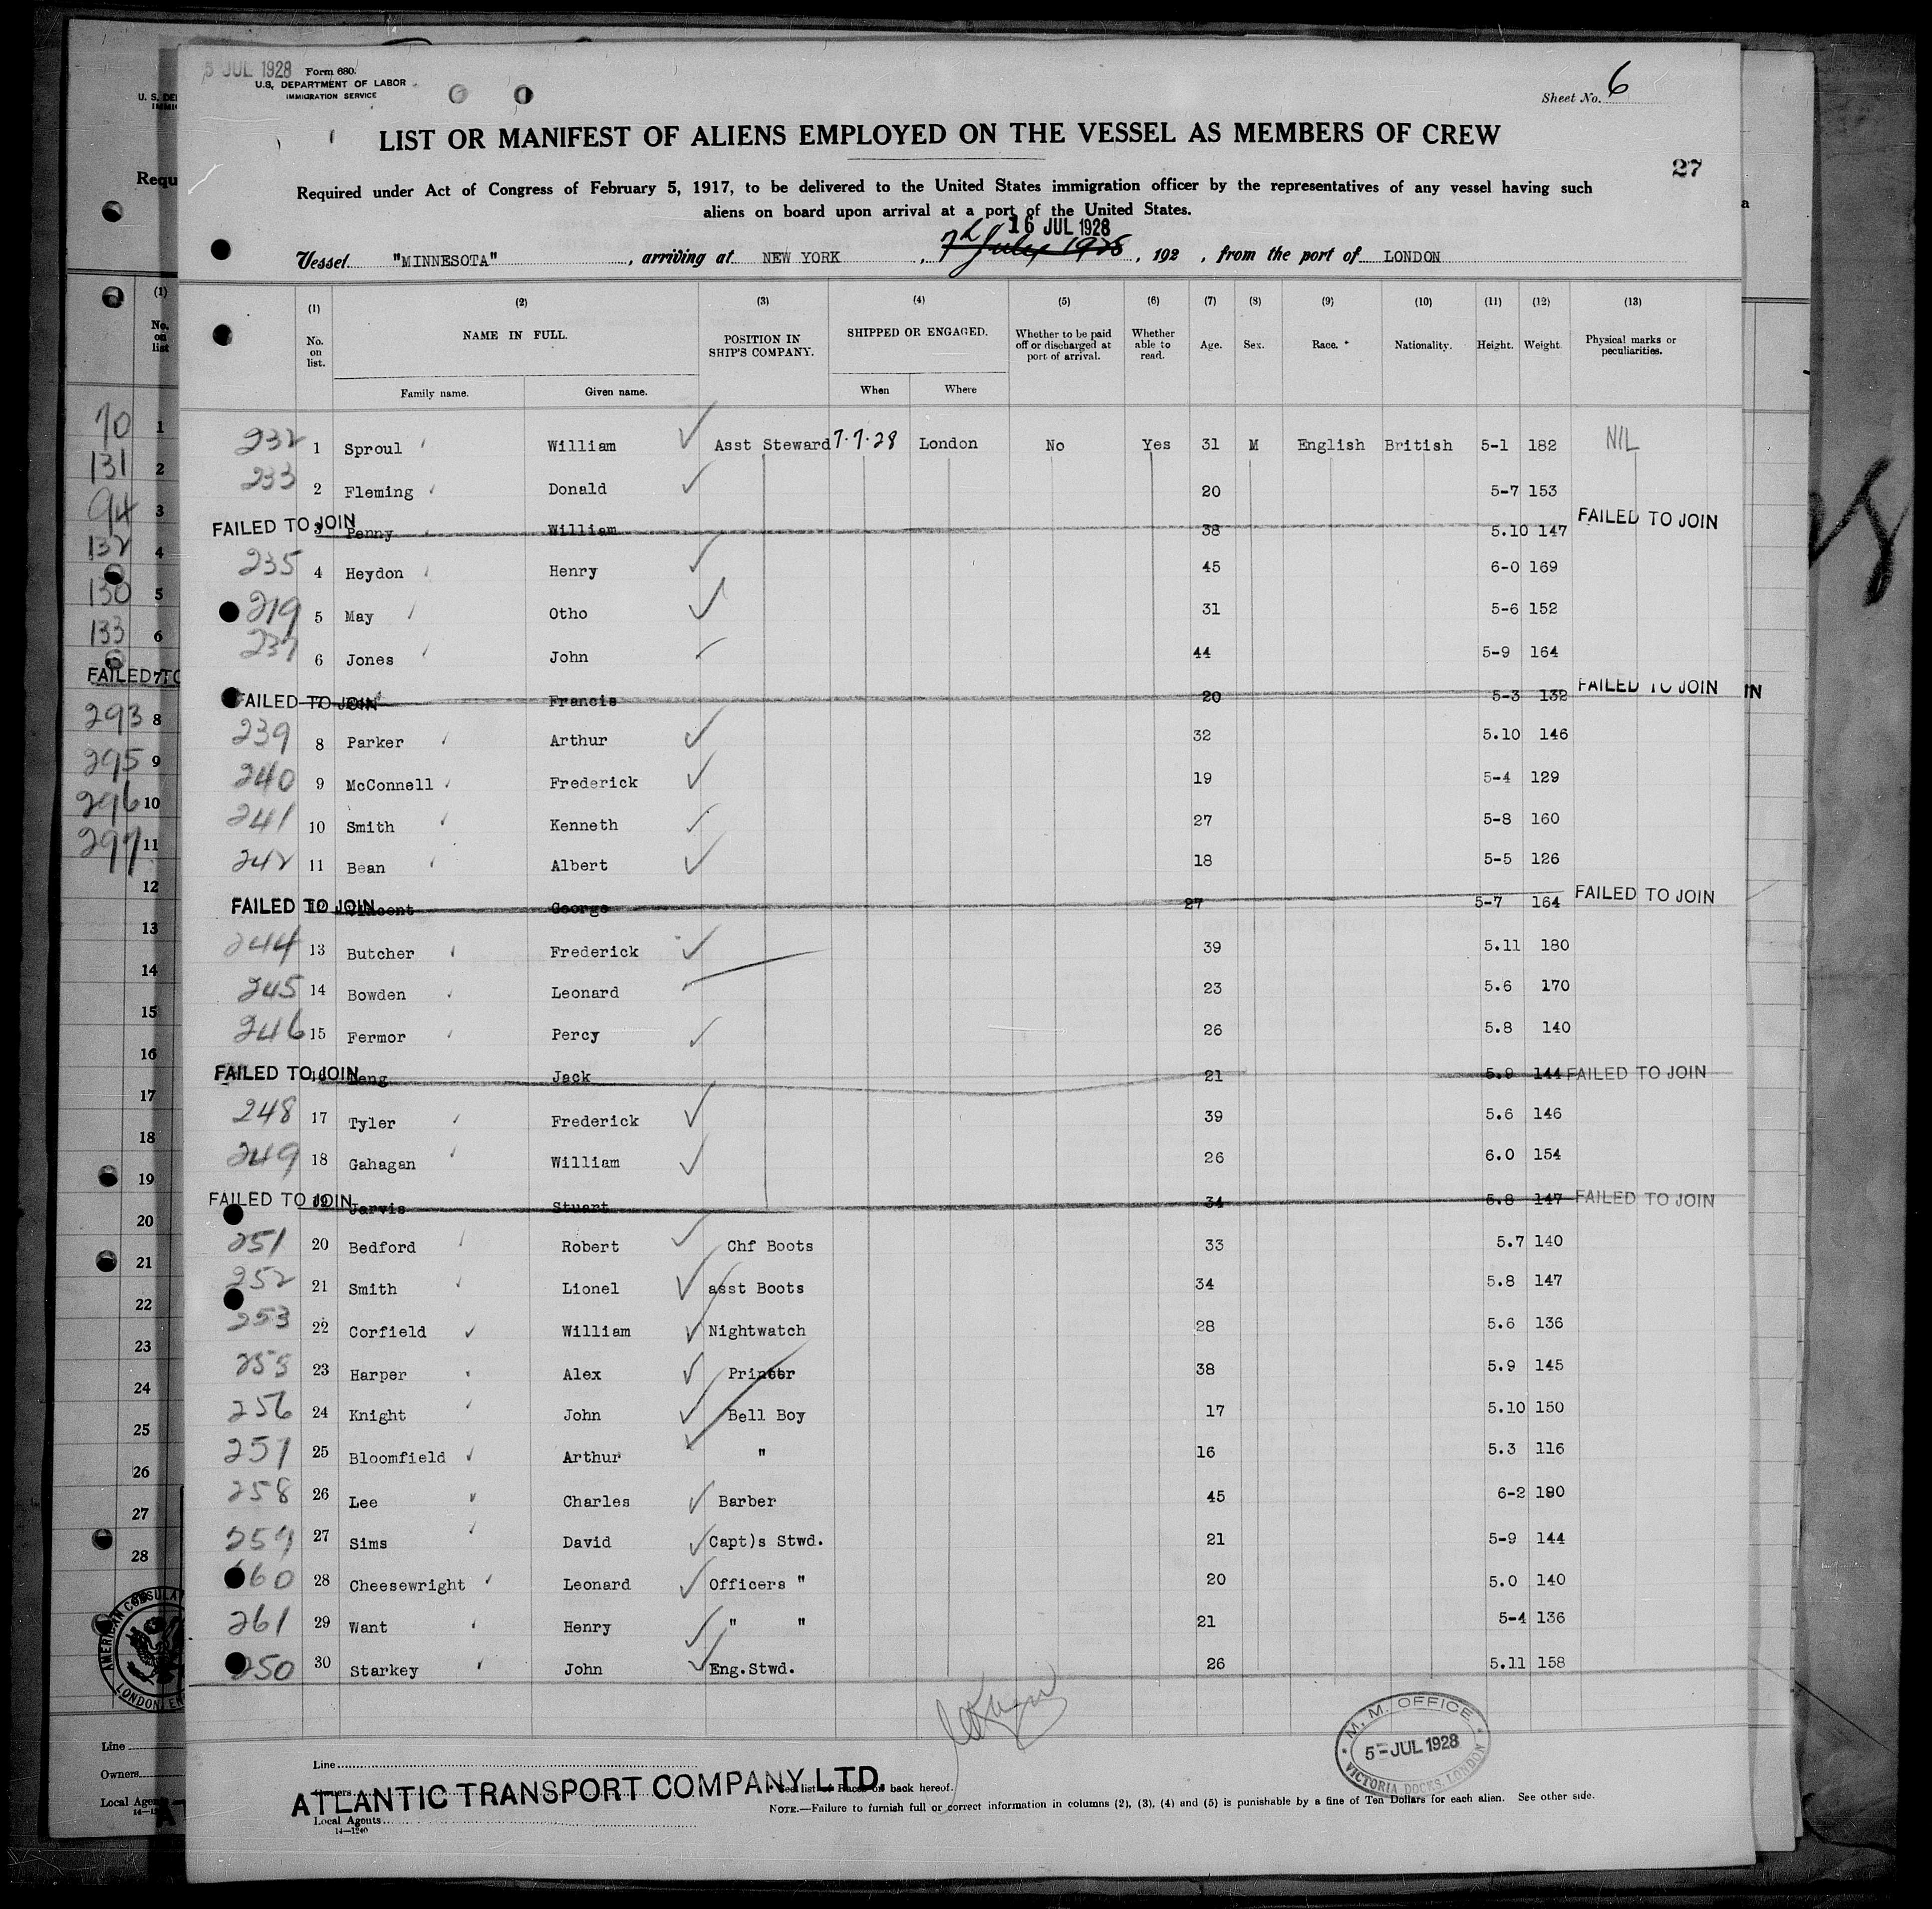 5 JUL 1928 Form 680.
U.S. DEPARTMENT OF LABOR
IMMIGRATION SERVICE
Sheet No. 6
LIST OR MANIFEST OF ALIENS EMPLOYED ON THE VESSEL AS MEMBERS OF CREW
27
Required under Act of Congress of February 5, 1917, to be delivered to the United States immigration officer by the representatives of any vessel having such
aliens on board upon arrival at a port of the United States.
16 JUL 1928
Vessel "MINNESOTA", arriving at NEW YORK, 7th July 1928, 192 , from the port of LONDON
(1) (2) (3) (4) (5) (6) (7) (8) (9) (10) (11) (12) (13)
No. on list. NAME IN FULL. POSITION IN SHIP'S COMPANY. SHIPPED OR ENGAGED. Whether to be paid off or discharged at port of arrival. Whether able to read. Age. Sex. Race. * Nationality. Height. Weight. Physical marks or peculiarities.
Family name. Given name. When Where
232 1 Sproul William Asst Steward 7.7.28 London No Yes 31 M English British 5-1 182 NIL
233 2 Fleming Donald 20 5-7 153
FAILED TO JOIN 3 Penny William 38 5.10 147 FAILED TO JOIN
235 4 Heydon Henry 45 6-0 169
219 5 May Otho 31 5-6 152
237 6 Jones John 44 5-9 164
FAILED TO JOIN 7 Francis 20 5-3 132 FAILED TO JOIN
239 8 Parker Arthur 32 5.10 146
240 9 McConnell Frederick 19 5-4 129
241 10 Smith Kenneth 27 5-8 160
242 11 Bean Albert 18 5-5 126
FAILED TO JOIN 12 Vincent George 27 5-7 164 FAILED TO JOIN
244 13 Butcher Frederick 39 5.11 180
245 14 Bowden Leonard 23 5.6 170
246 15 Fermor Percy 26 5.8 140
FAILED TO JOIN 16 Jack 21 5.9 144 FAILED TO JOIN
248 17 Tyler Frederick 39 5.6 146
249 18 Gahagan William 26 6.0 154
FAILED TO JOIN 19 Jarvis Stuart 34 5.8 147 FAILED TO JOIN
251 20 Bedford Robert Chf Boots 33 5.7 140
252 21 Smith Lionel asst Boots 34 5.8 147
253 22 Corfield William Nightwatch 28 5.6 136
255 23 Harper Alex Printer 38 5.9 145
256 24 Knight John Bell Boy 17 5.10 150
257 25 Bloomfield Arthur " 16 5.3 116
258 26 Lee Charles Barber 45 6-2 180
259 27 Sims David Capt)s Stwd. 21 5-9 144
60 28 Cheesewright Leonard Officers " 20 5.0 140
261 29 Want Henry " " 21 5-4 136
250 30 Starkey John Eng.Stwd. 26 5.11 158
M. M. OFFICE
5-JUL 1928
VICTORIA DOCKS, LONDON
Line
Owners
ATLANTIC TRANSPORT COMPANY LTD.
* See list of Races on back hereof.
NOTE.—Failure to furnish full or correct information in columns (2), (3), (4) and (5) is punishable by a fine of Ten Dollars for each alien. See other side.
Local Agents
14—1240
U. S. DE
IMMI
Requ
(1)
No. on list
70 1
131 2
94 3
132 4
130 5
133 6
FAILED TO 7
293 8
295 9
296 10
297 11
12
13
14
15
16
17
18
19
20
21
22
23
24
25
26
27
28
AMERICAN CONSULA
LONDON, EN
Line
Owners
Local Agents
14—12
IN